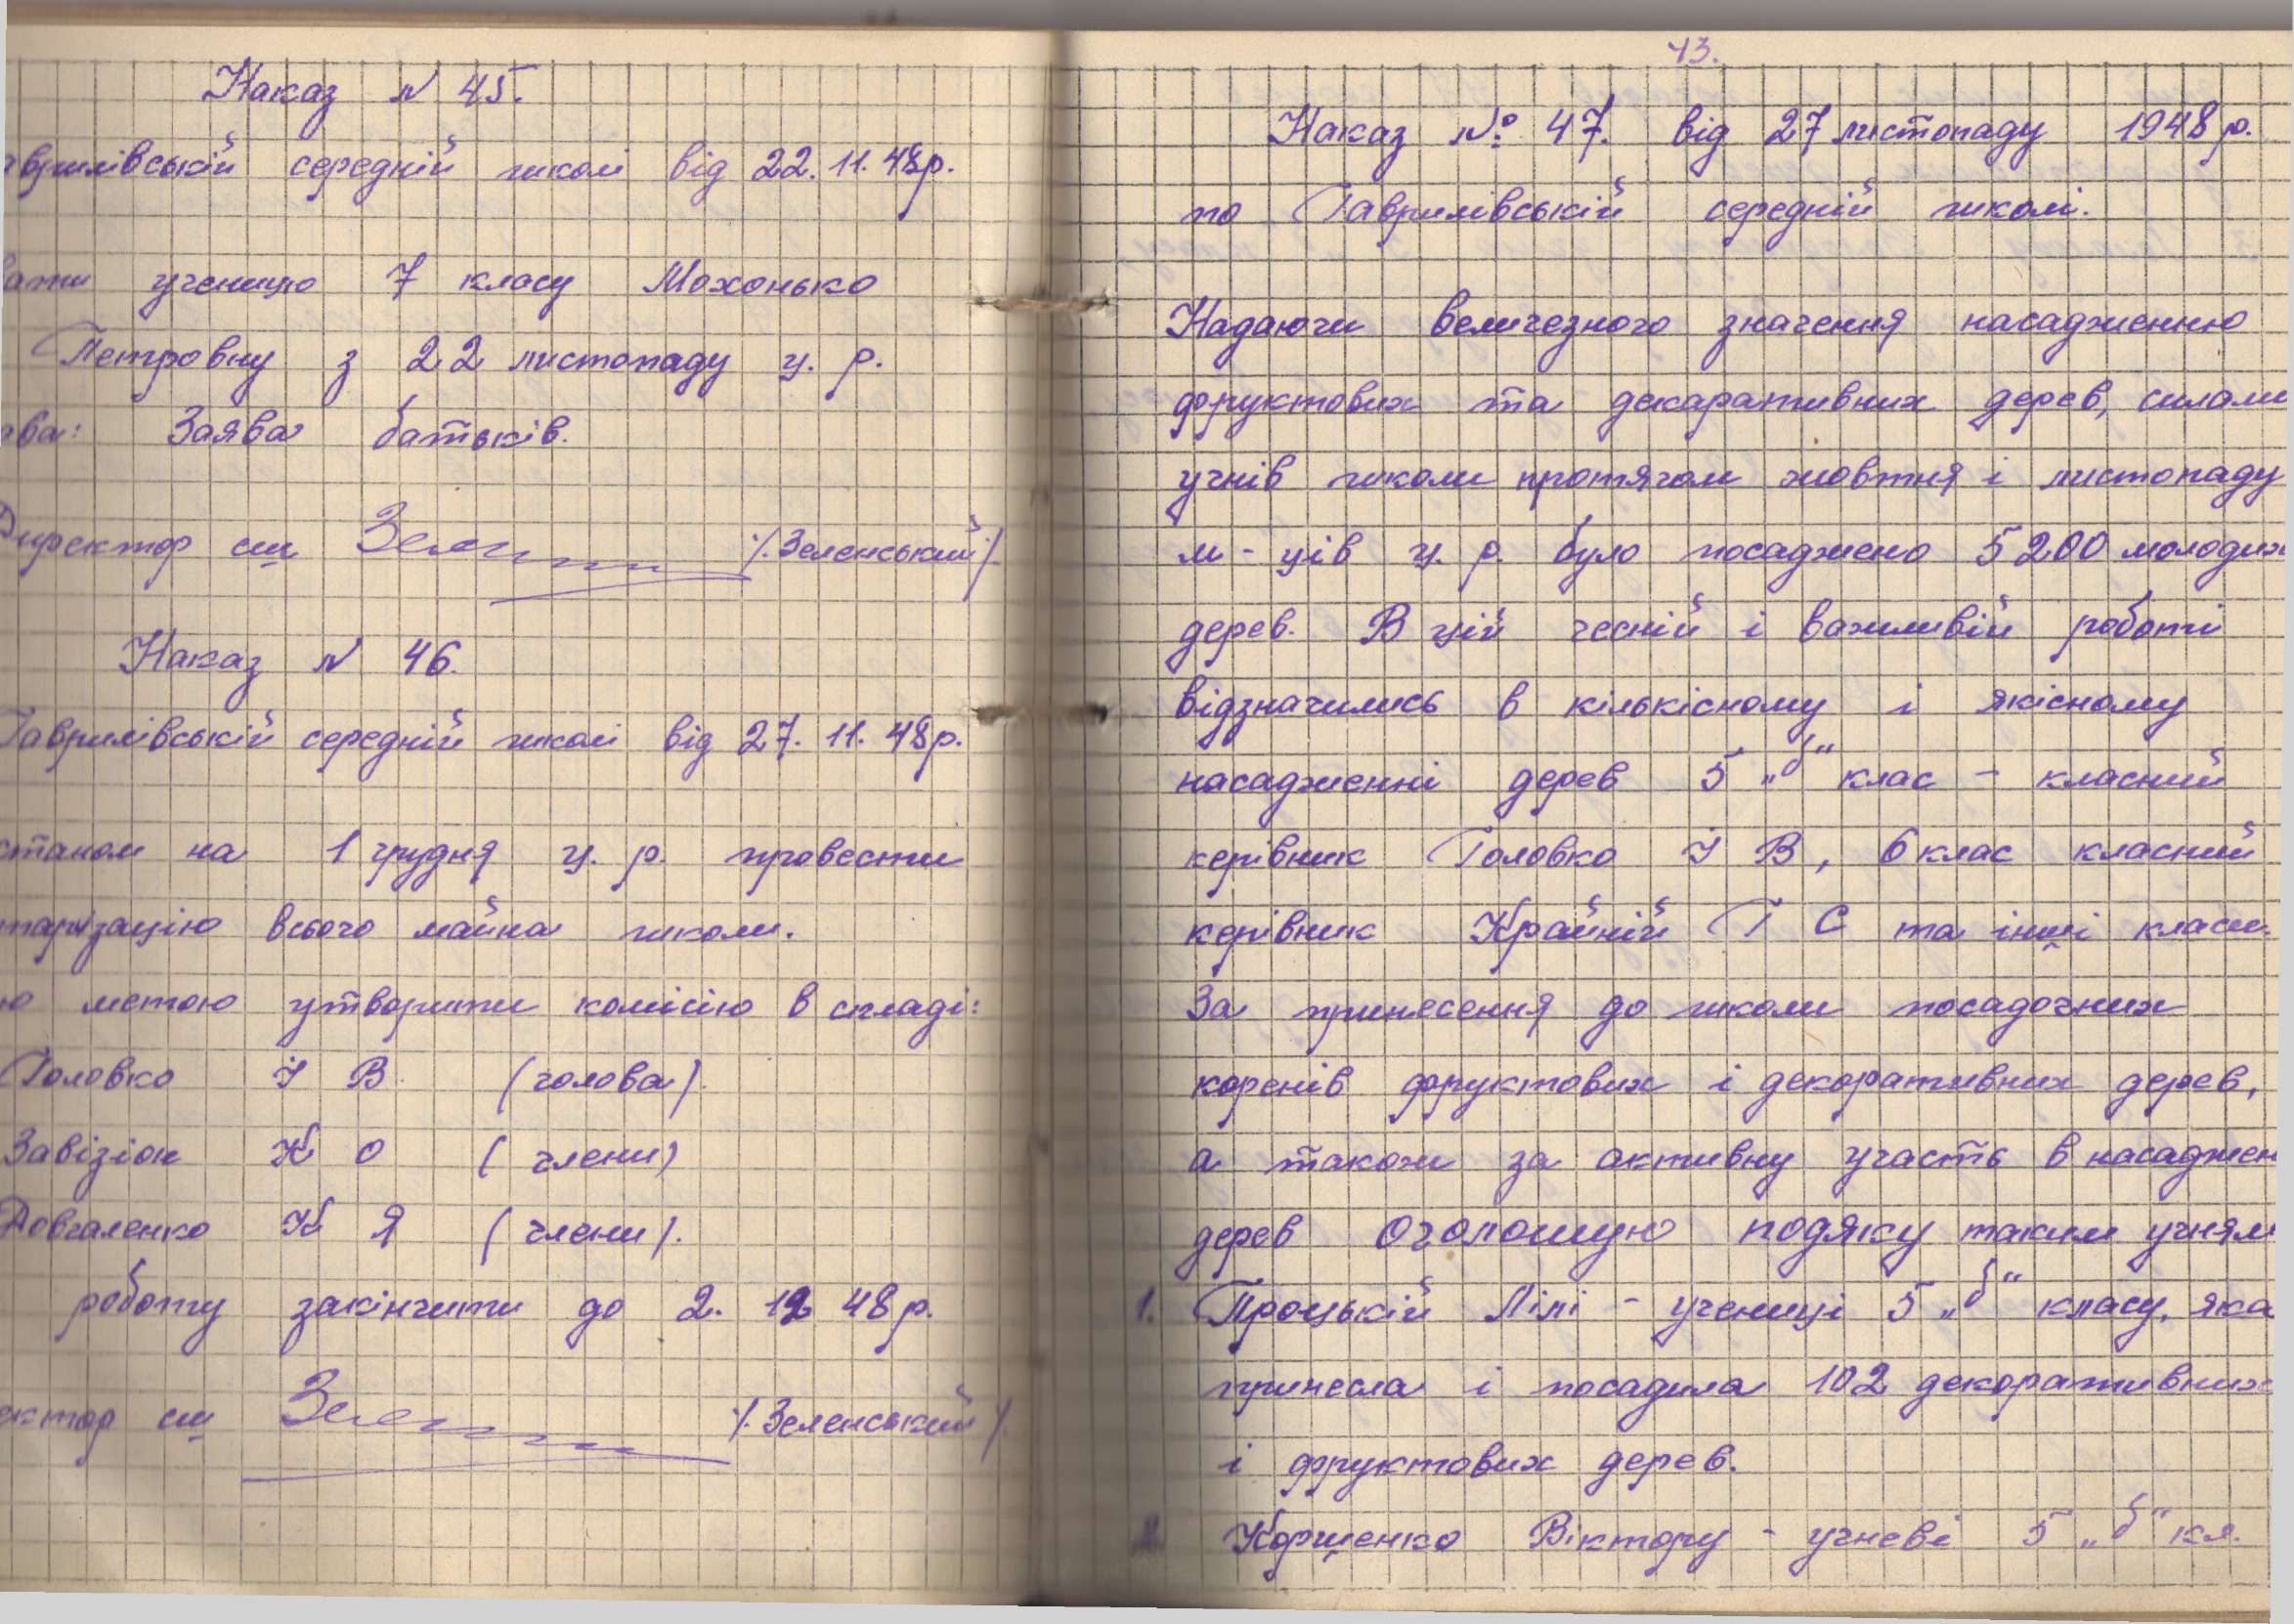 Наказ N 45.
аврилівській середній школі від 22.11.48р.
вати ученицю 7 класу Мохонько
Петровну з 22 листопаду ц. р.
ава: Заява батьків.
Директор сш Зелен /.Зеленський/.
Наказ N 46.
Гаврилівській середній школі від 27.11.48р.
станом на 1 грудня ц. р. провести
таризацію всього майна школи.
ю метою утворити комісію в складі:
Головко І В. (голова).
Завізіон К О (члени)
Довгаленко К Я (члени).
роботу закінчити до 2. 12 48р.
ектор сш Зелен /.Зеленський/.
43.
Наказ №: 47. від 27 листопаду 1948р.
по Гаврилівській середній школі.
Надаючи величезного значення насадженню
фруктових та декаративних дерев, силами
учнів школи протягом жовтня і листопаду
м-ців ц. р. було посаджено 5200 молодих
дерев. В цій чесній і важливій роботі
відзначились в кількісному і якісному
насадженні дерев 5 „б" клас - класний
керівник Головко І В, 6 клас класний
керівник Крайній Г С та інші класи.
За принесення до школи посадочних
коренів фруктових і декоративних дерев,
а також за активну участь в насаджен
дерев оголошую подяку таким учням
1. Троцькій Лілі - учениці 5 „б" класу, яка
принесла і посадила 102 декоративних
і фруктових дерев.
Корщенко Віктору - учневі 5 „б" кл.